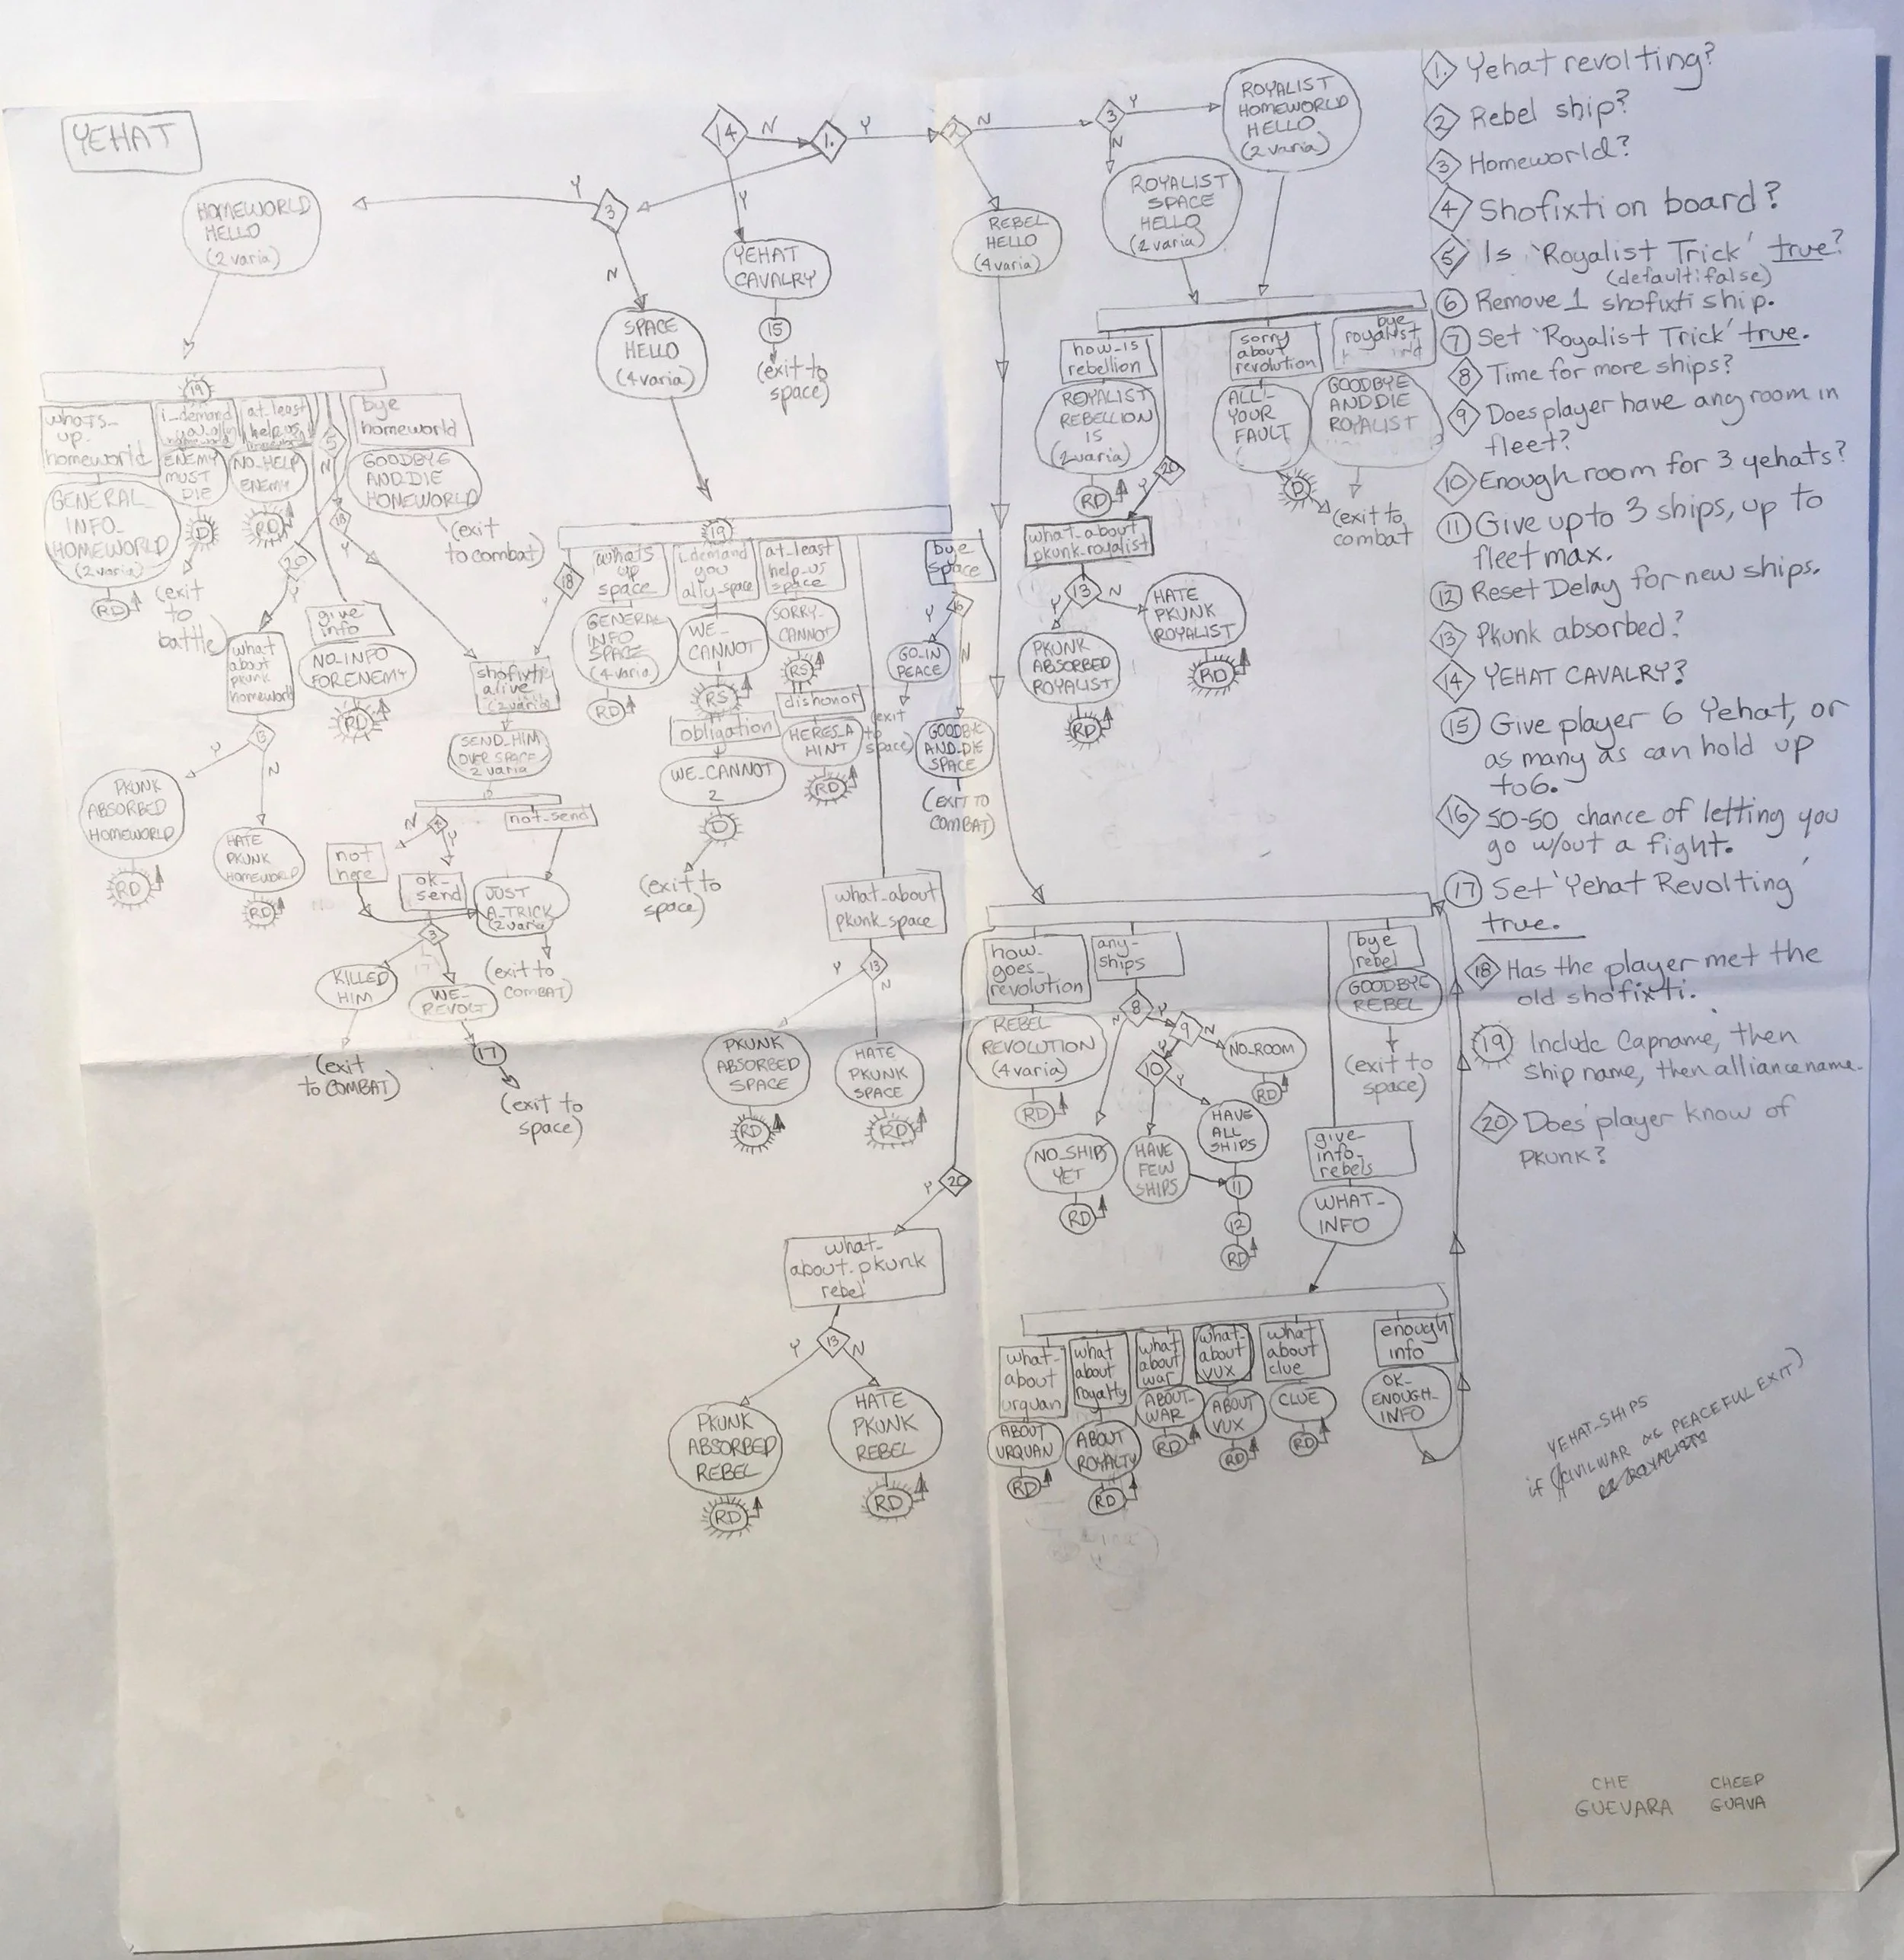 YEHAT
14
N
1.
Y
2
N
3
Y
ROYALIST
HOMEWORLD
HELLO
(2 varia)
N
ROYALIST
SPACE
HELLO
(2 varia)
Y
3
Y
HOMEWORLD
HELLO
(2 varia)
N
YEHAT
CAVALRY
15
(exit to
space)
SPACE
HELLO
(4 varia)
REBEL
HELLO
(4 varia)
19
whats_
up_
homeworld
GENERAL
INFO_
HOMEWORLD
(2 varia)
RD
i_demand
ENEMY
MUST
DIE
D
(exit
to
battle)
at_least
help_us
NO_HELP
ENEMY
RD
5
N
18
Y
20
Y
bye
homeworld
GOODBYE
AND DIE
HOMEWORLD
(exit
to combat)
what
about
pkunk
homeworld
13
Y
N
PKUNK
ABSORBED
HOMEWORLD
RD
HATE
PKUNK
HOMEWORLD
RD
give
info
NO_INFO
FOR ENEMY
RD
19
18
Y
whats
up
space
GENERAL
INFO
SPACE
(4 varia)
RD
i_demand
you
ally_space
WE_
CANNOT
RS
obligation
WE_CANNOT
2
D
(exit to
space)
at_least
help_us
space
SORRY_
CANNOT
RS
dishonor
HERES_A
HINT
RD
bye
space
16
Y
N
GO_IN
PEACE
(exit
to
space)
GOODBYE
AND_DIE
SPACE
(EXIT TO
COMBAT)
shofixti
alive
(2 varia)
SEND_HIM
OVER SPACE
2 varia
4
N
Y
not_send
not
here
ok_
send
JUST
A_TRICK
(2 varia
(exit to
COMBAT)
3
KILLED
HIM
(exit
to COMBAT)
WE_
REVOLT
17
(exit to
space)
what_about
pkunk_space
13
Y
N
PKUNK
ABSORBED
SPACE
RD
HATE
PKUNK
SPACE
RD
how_is
rebellion
ROYALIST
REBELLION
IS
(2 varia)
RD
20
Y
what_about
pkunk_royalist
13
Y
N
PKUNK
ABSORBED
ROYALIST
RD
HATE
PKUNK
ROYALIST
RD
sorry
about
revolution
ALL_
YOUR
FAULT
D
(exit to
combat
bye
royalist
GOODBYE
AND DIE
ROYALIST
how_
goes_
revolution
REBEL
REVOLUTION
(4 varia)
RD
any_
ships
8
N
Y
9
N
NO_ROOM
RD
Y
10
Y
NO_SHIPS
YET
RD
HAVE
FEW
SHIPS
HAVE
ALL
SHIPS
11
12
RD
bye
rebel
GOODBYE
REBEL
(exit to
space)
give
info_
rebels
WHAT_
INFO
20
Y
what_
about_pkunk
rebel
13
Y
N
PKUNK
ABSORBED
REBEL
RD
HATE
PKUNK
REBEL
RD
what_
about
urquan
ABOUT
URQUAN
RD
what
about
royalty
ABOUT
ROYALTY
RD
what
about
war
ABOUT_
WAR
RD
what_
about
VUX
ABOUT
VUX
RD
what
about
clue
CLUE
RD
enough
info
OK_
ENOUGH_
INFO
1. Yehat revolting?
2 Rebel ship?
3 Homeworld?
4 Shofixti on board?
5 Is 'Royalist Trick' true?
(default: false)
6 Remove 1 shofixti ship.
7 Set 'Royalist Trick' true.
8 Time for more ships?
9 Does player have any room in
fleet?
10 Enough room for 3 yehats?
11 Give up to 3 ships, up to
fleet max.
12 Reset Delay for new ships.
13 Pkunk absorbed?
14 YEHAT CAVALRY?
15 Give player 6 Yehat, or
as many as can hold up
to 6.
16 50-50 chance of letting you
go w/out a fight.
17 Set 'Yehat Revolting'
true.
18 Has the player met the
old shofixti.
19 Include Capname, then
Ship name, then alliancename.
20 Does player know of
PKUNK?
YEHAT_SHIPS
if (CIVILWAR PEACEFUL EXIT)
CHE
GUEVARA
CHEEP
GUAVA